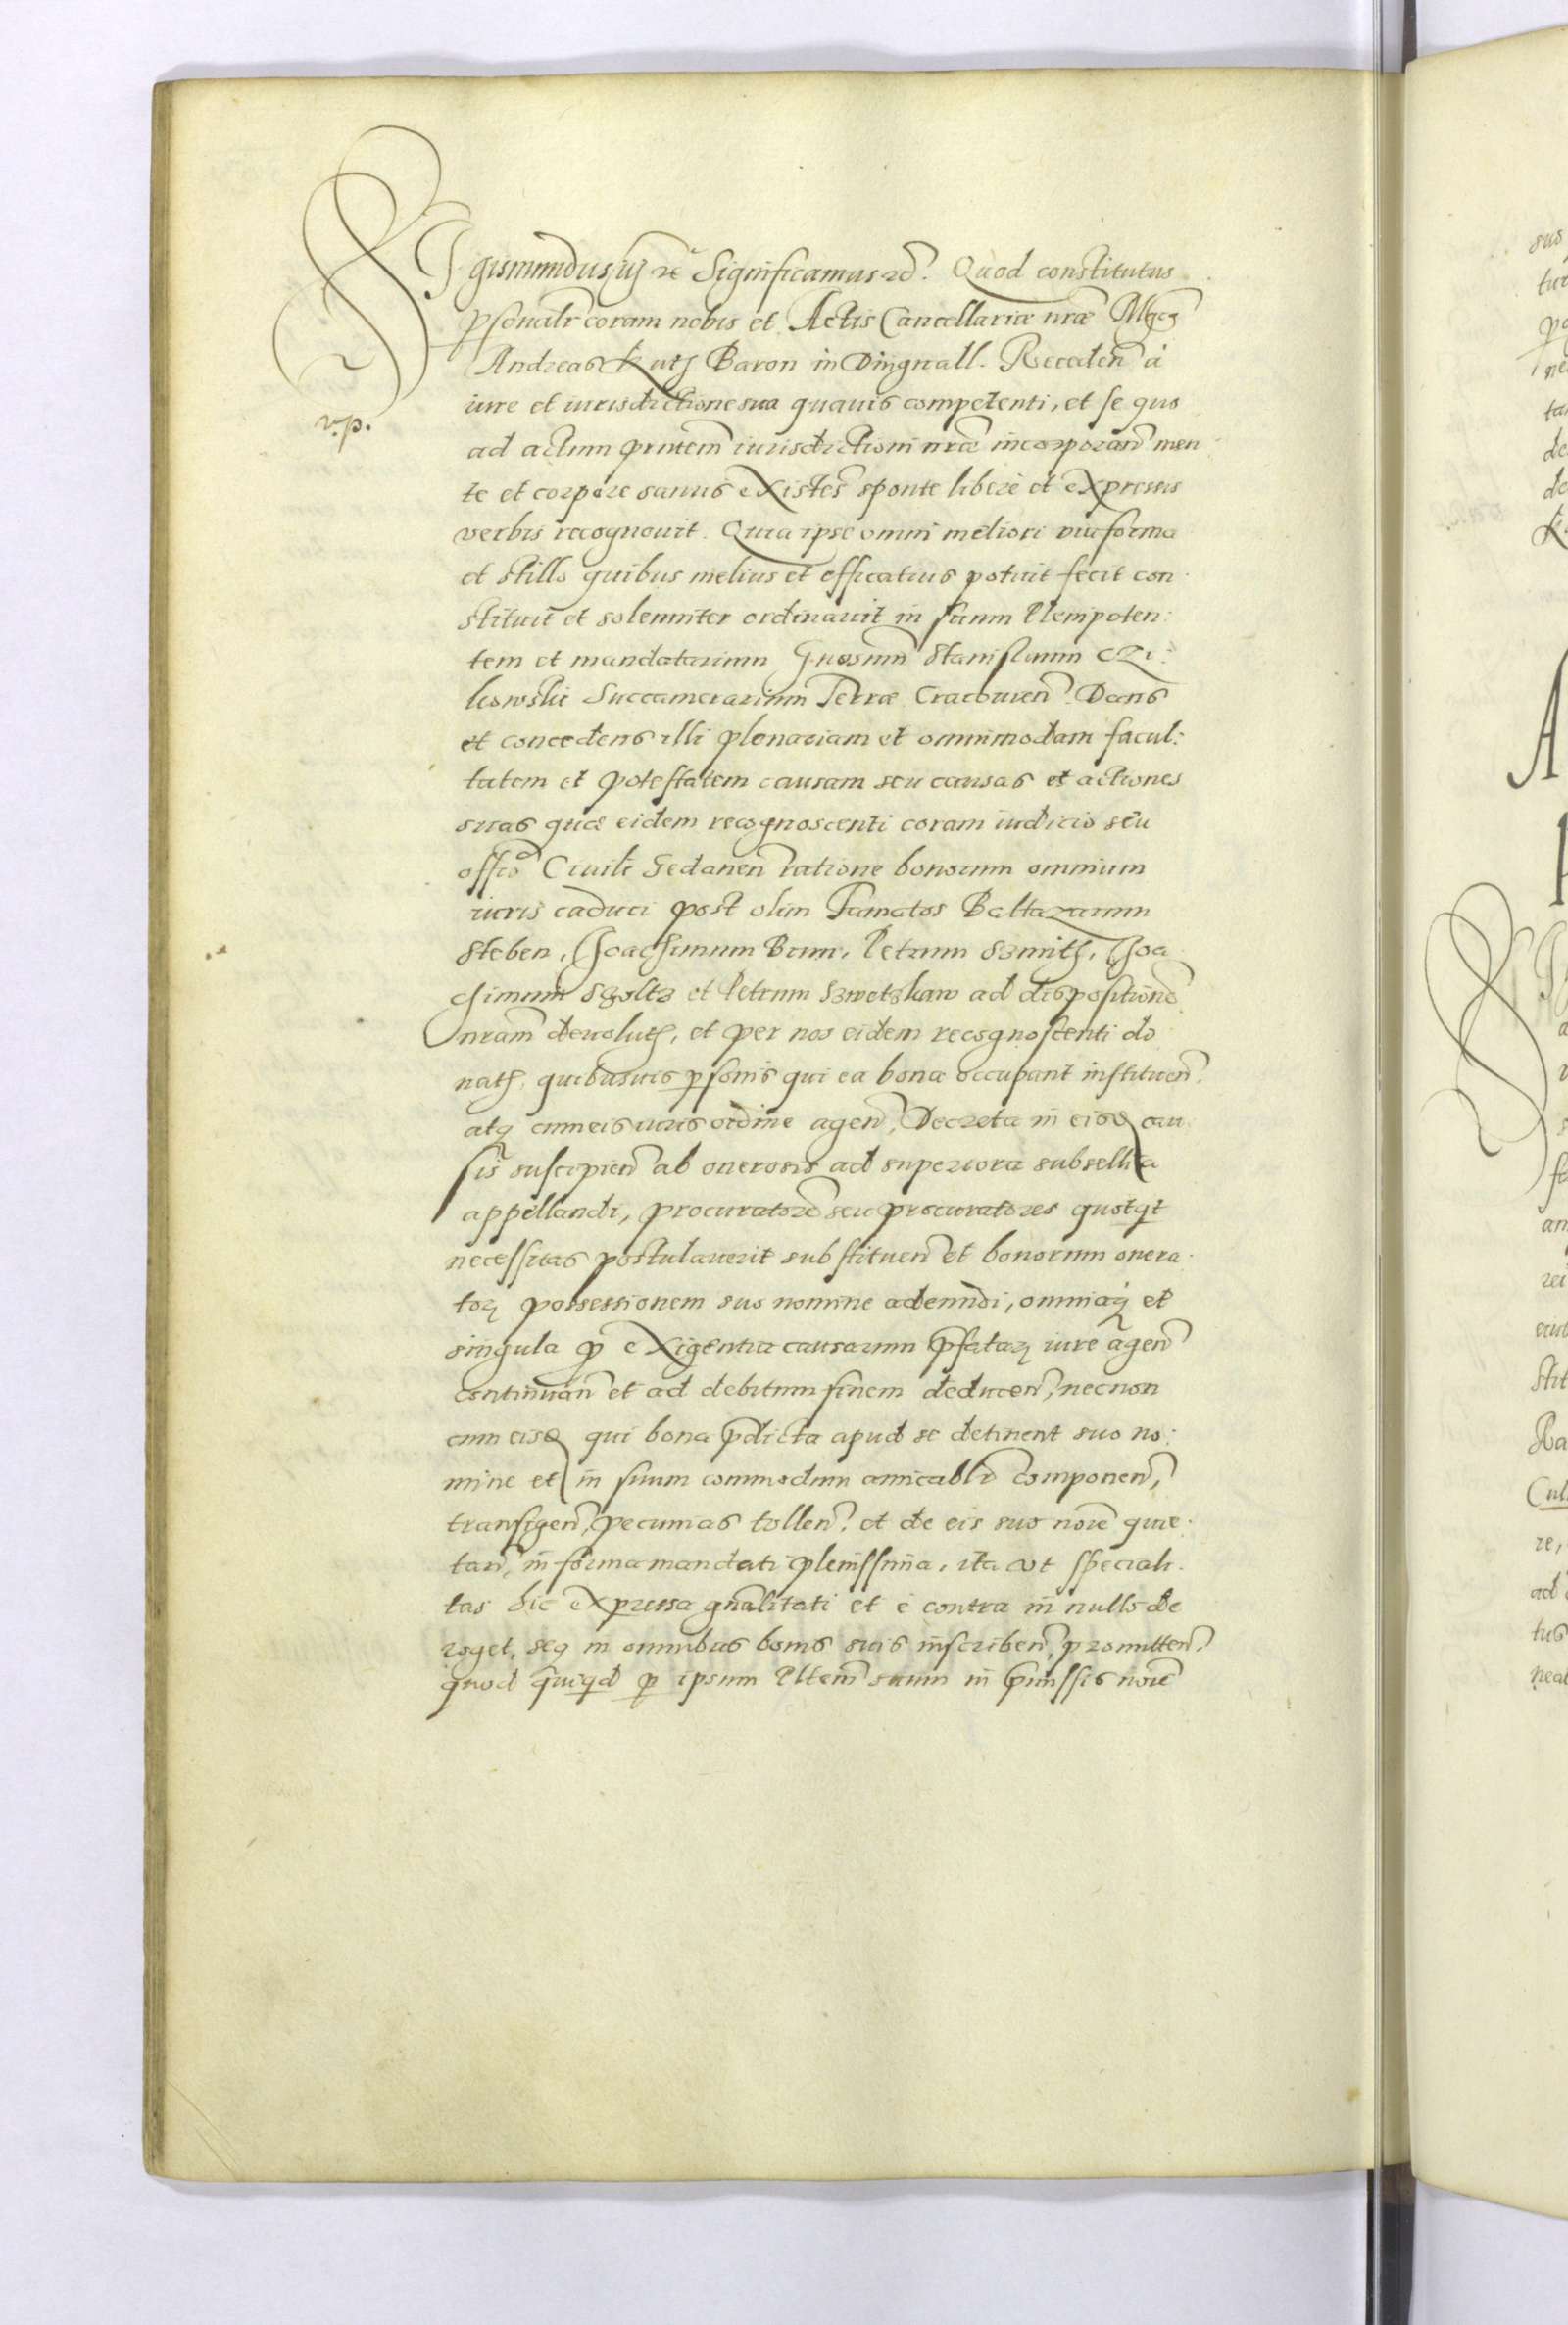 Sigismundus iij etc Significamus etc. Quod constitutus
psonalr coram nobis et Actis Cancellariæ nræ Mgcs
Andreas Kuth Baron in Dingnall. Receden a
iure et iurisdictione sua quauis competenti, et se quo
ad actum pntem iurisdictioni nræ incorporan men
te et corpore sanus existes sponte libere et expressis
verbis recognouit. Quia ipse omni meliori via forma
et stillo quibus melius et efficatius potuit fecit con
stituit et solemniter ordinauit in suum Plenipoten:
tem et mandatarium Gnosum Stanislaum Czi:
kowski Succamerarium Terræ Cracouien. Dans
et concedens illi plenariam et omnimodam facul:
tatem et potestatem causam seu causas et actiones
suas quæ eidem recognoscenti coram iudicio seu
offio Ciuili Gedanen ratione bonorum omnium
iuris caduci post olim Famatos Baltazarum
Steben, Joachimum Bum, Petrum Szmith, Joa
chimum Scholtz et Petrum Szwetzkaw ad dispositione
nram deuoluth, et per nos eidem recognoscenti do
nath, quibusuis psonis qui ea bona occupant instituen.
atq cum eis iuris ordine agen, Decreta in eisd cau
sis suscipien ab onerosis ad superiora subsellia
appellandi, procuratore seu procuratores quotqt
necessitas postulauerit substituen et bonorum onera
tor possessionem suo nomine adeundi, omniaq et
singula p exigentia causarum pfatar iure agen
continuan et ad debitum finem deducen, necnon
cum eisd qui bona pdicta apud se detinent suo no:
mine et in suum commodum amicablr componen,
transigen, pecunias tollen. et de eis suo noie quie
tan, in forma mandati plenissima, ita vt speciali
tas hic expressa gnalitati et e contra in nullo de
roget, seq in omnibus bonis suis inscriben, promitten.
quod quiqd p ipsum Pltem suum in pmissis noie
v. p.